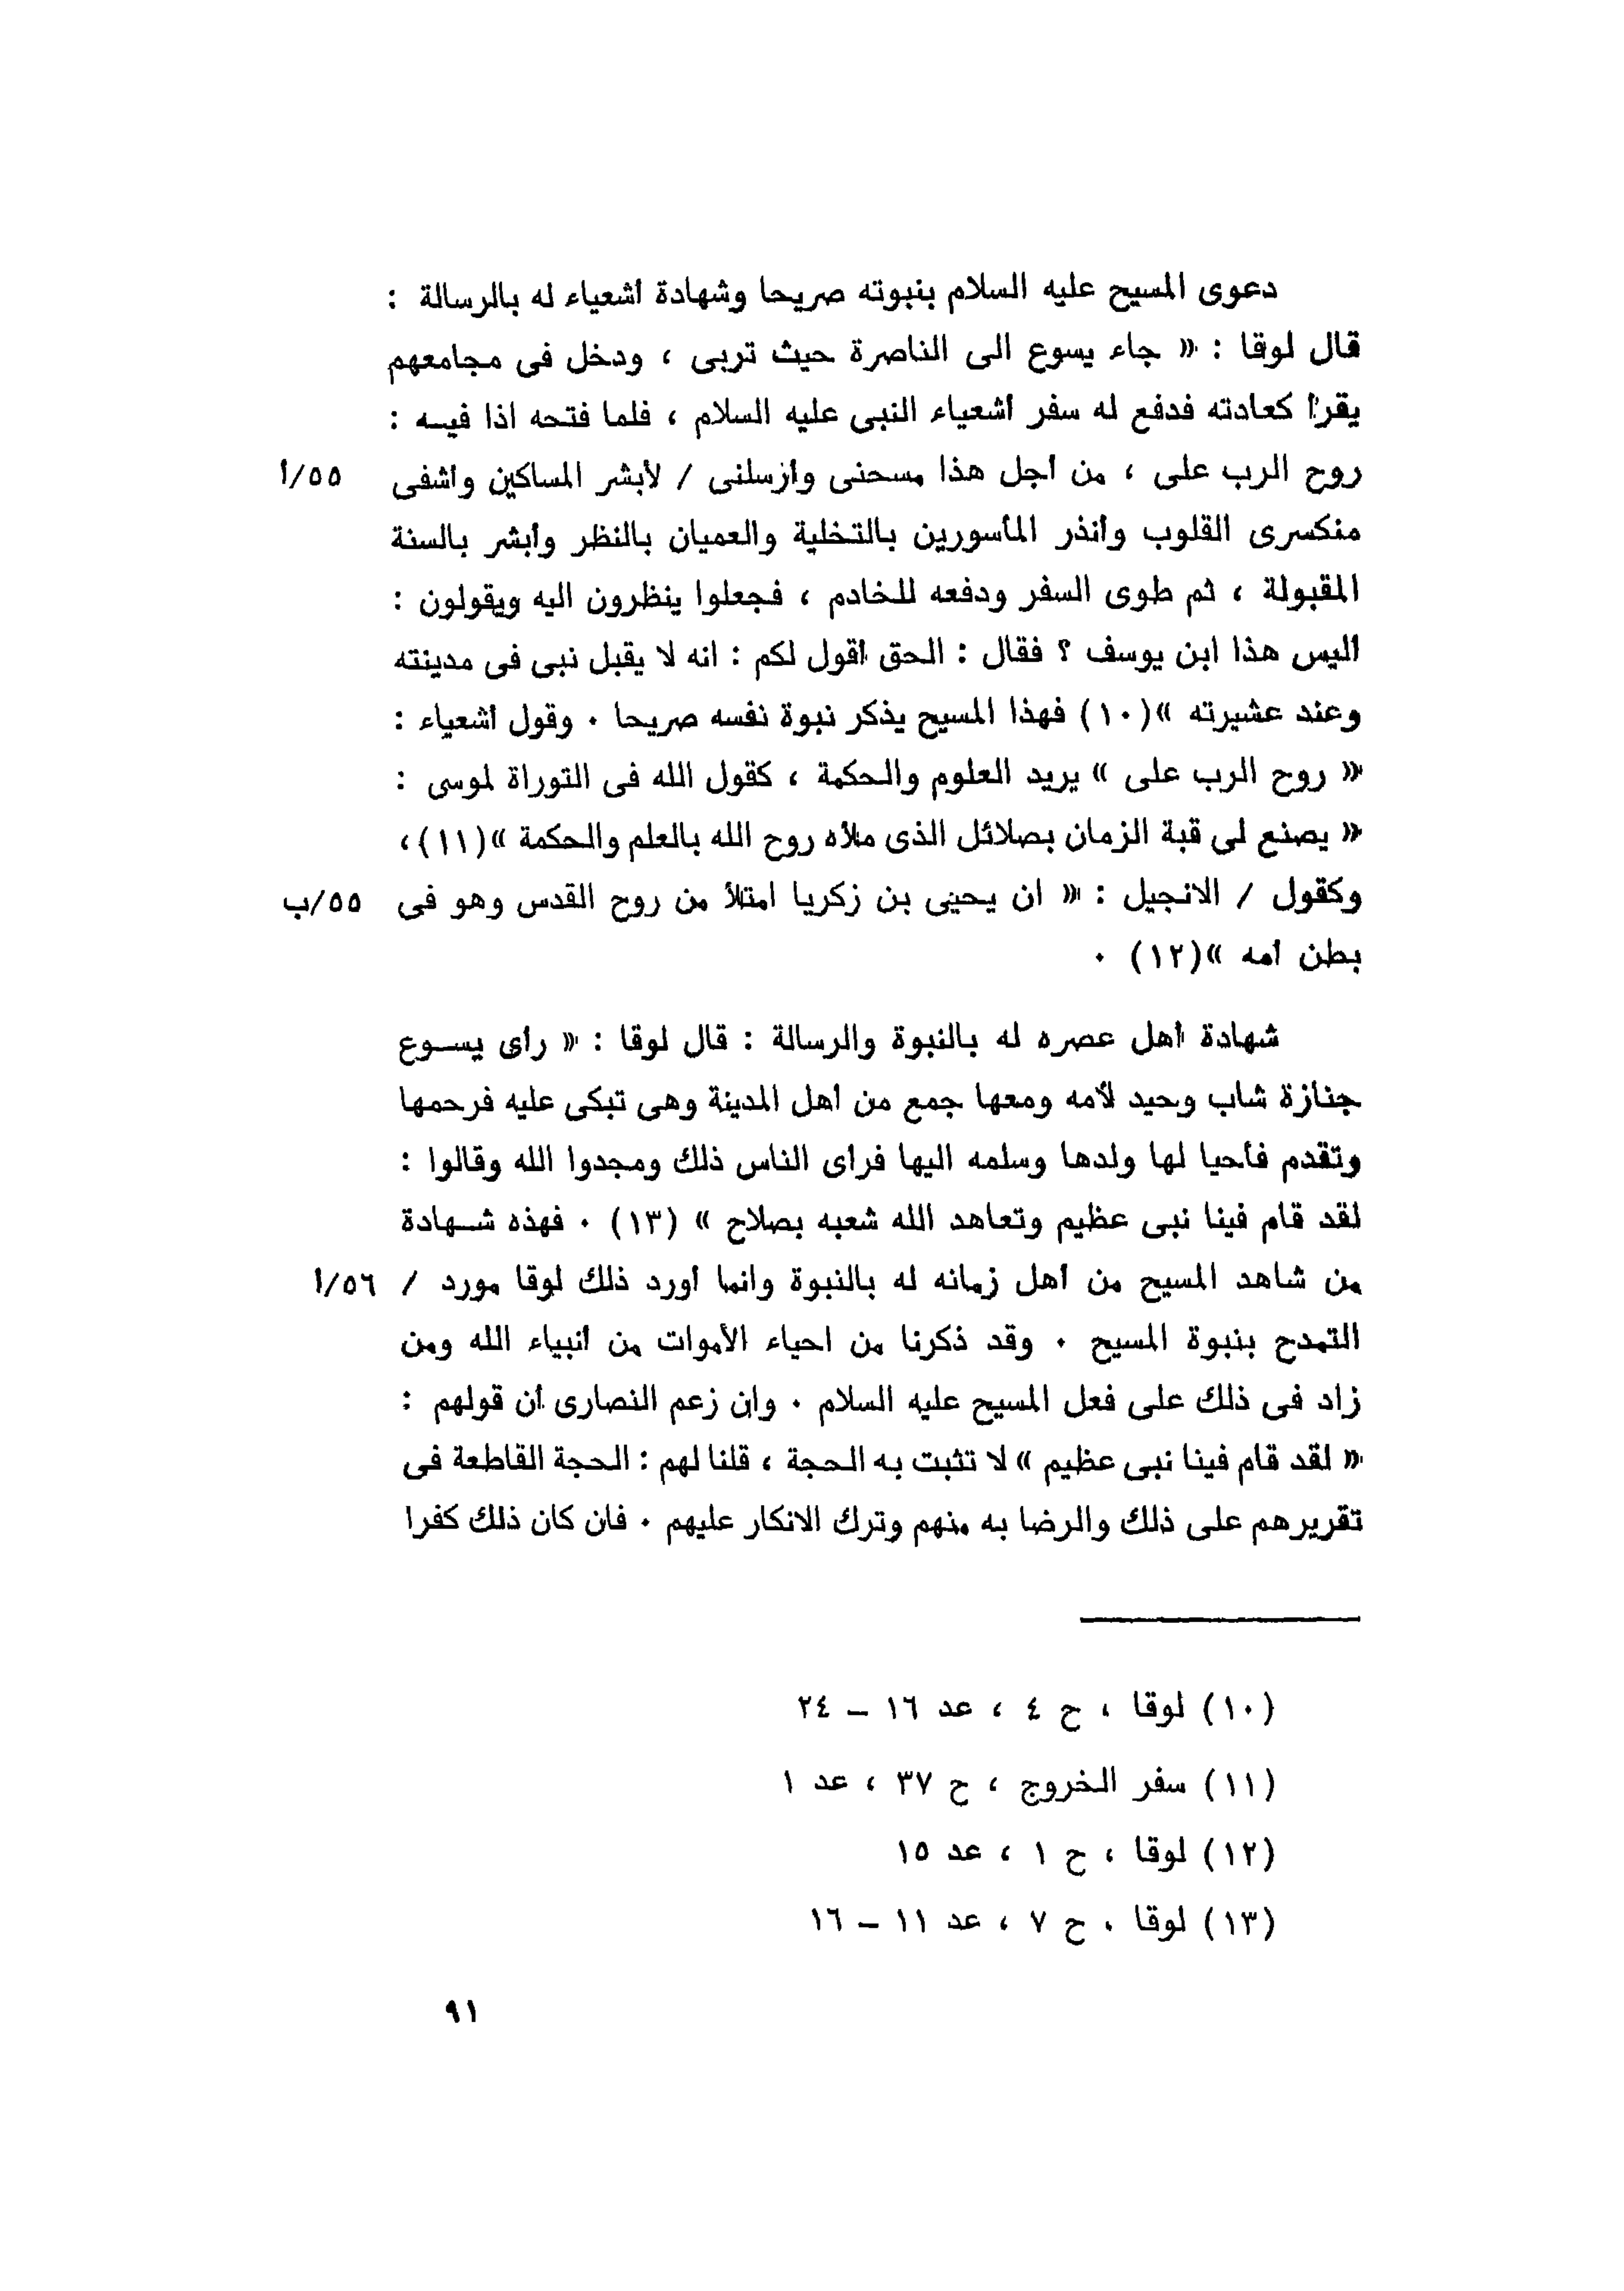 دعوى المسيح عليه السلام بنبوته صريحا وشهادة أشعياء له بالرسالة :
قال لوقا : « جاء يسوع الى الناصرة حيث تربى ، ودخل فى مجامعهم
يقرأ كعادته فدفع له سفر أشعياء النبى عليه السلام ، فلما فتحه اذا فيه :
روح الرب على ، من أجل هذا مسحنى وأرسلنى / لأبشر المساكين وأشفى ٥٥/أ
منكسرى القلوب وأنذر المأسورين بالتخلية والعميان بالنظر وأبشر بالسنة
المقبولة ، ثم طوى السفر ودفعه للخادم ، فجعلوا ينظرون اليه ويقولون :
أليس هذا ابن يوسف ؟ فقال : الحق أقول لكم : انه لا يقبل نبى فى مدينته
وعند عشيرته »(١٠) فهذا المسيح يذكر نبوة نفسه صريحا . وقول أشعياء :
« روح الرب على » يريد العلوم والحكمة ، كقول الله فى التوراة لموسى :
« يصنع لى قبة الزمان بصلائل الذى ملأه روح الله بالعلم والحكمة »(١١)،
وكقول / الانجيل : « ان يحيى بن زكريا امتلأ من روح القدس وهو فى ٥٥/ب
بطن أمه »(١٢) .
شهادة أهل عصره له بالنبوة والرسالة : قال لوقا : « رأى يسوع
جنازة شاب وحيد لأمه ومعها جمع من أهل المدينة وهى تبكى عليه فرحمها
وتقدم فأحيا لها ولدها وسلمه اليها فرأى الناس ذلك ومجدوا الله وقالوا :
لقد قام فينا نبى عظيم وتعاهد الله شعبه بصلاح » (١٣) . فهذه شهادة
من شاهد المسيح من أهل زمانه له بالنبوة وانما أورد ذلك لوقا مورد / ٥٦/أ
التمدح بنبوة المسيح . وقد ذكرنا من احياء الأموات من أنبياء الله ومن
زاد فى ذلك على فعل المسيح عليه السلام . وان زعم النصارى أن قولهم :
« لقد قام فينا نبى عظيم » لا تثبت به الحجة ، قلنا لهم : الحجة القاطعة فى
تقريرهم على ذلك والرضا به منهم وترك الانكار عليهم . فان كان ذلك كفرا
(١٠) لوقا ، ح ٤ ، عد ١٦ – ٢٤
(١١) سفر الخروج ، ح ٣٧ ، عد ١
(١٢) لوقا ، ح ١ ، عد ١٥
(١٣) لوقا ، ح ٧ ، عد ١١ – ١٦
٩١